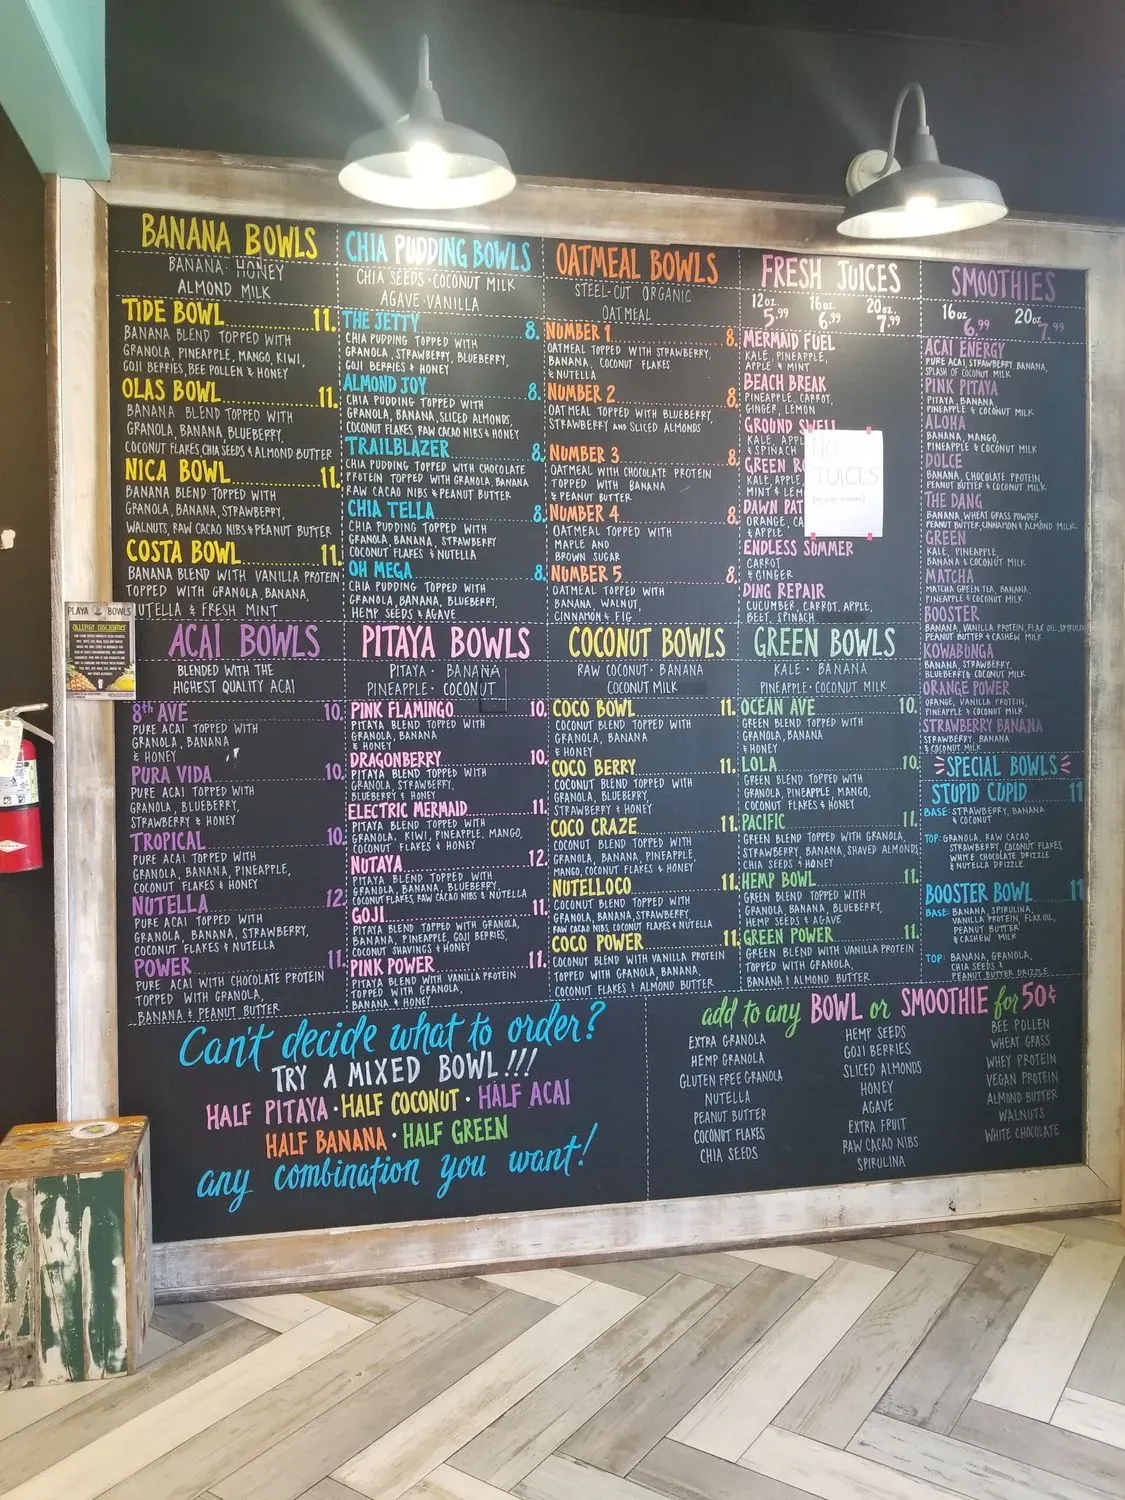 BANANA BOWLS
BANANA · HONEY
ALMOND MILK
TIDE BOWL 11.
BANANA BLEND TOPPED WITH
GRANOLA, PINEAPPLE, MANGO, KIWI,
GOJI BERRIES, BEE POLLEN & HONEY
OLAS BOWL 11.
BANANA BLEND TOPPED WITH
GRANOLA, BANANA, BLUEBERRY,
COCONUT FLAKES, CHIA SEEDS & ALMOND BUTTER
NICA BOWL 11.
BANANA BLEND TOPPED WITH
GRANOLA, BANANA, STRAWBERRY,
WALNUTS, RAW CACAO NIBS & PEANUT BUTTER
COSTA BOWL 11.
BANANA BLEND WITH VANILLA PROTEIN
TOPPED WITH GRANOLA, BANANA,
UTELLA & FRESH MINT
CHIA PUDDING BOWLS
CHIA SEEDS · COCONUT MILK
AGAVE · VANILLA
THE JETTY 8.
CHIA PUDDING TOPPED WITH
GRANOLA, STRAWBERRY, BLUEBERRY,
GOJI BERRIES & HONEY
ALMOND JOY 8.
CHIA PUDDING TOPPED WITH
GRANOLA, BANANA, SLICED ALMONDS,
COCONUT FLAKES, RAW CACAO NIBS & HONEY
TRAILBLAZER 8.
CHIA PUDDING TOPPED WITH CHOCOLATE
PROTEIN TOPPED WITH GRANOLA, BANANA
RAW CACAO NIBS & PEANUT BUTTER
CHIA TELLA 8.
CHIA PUDDING TOPPED WITH
GRANOLA, BANANA, STRAWBERRY
COCONUT FLAKES & NUTELLA
OH MEGA 8.
CHIA PUDDING TOPPED WITH
GRANOLA, BANANA, BLUEBERRY,
HEMP SEEDS & AGAVE
OATMEAL BOWLS
STEEL-CUT ORGANIC
OATMEAL
NUMBER 1 8.
OATMEAL TOPPED WITH STRAWBERRY,
BANANA, COCONUT FLAKES
& NUTELLA
NUMBER 2 8.
OATMEAL TOPPED WITH BLUEBERRY,
STRAWBERRY AND SLICED ALMONDS
NUMBER 3 8.
OATMEAL WITH CHOCOLATE PROTEIN
TOPPED WITH BANANA
& PEANUT BUTTER
NUMBER 4 8.
OATMEAL TOPPED WITH
MAPLE AND
BROWN SUGAR
NUMBER 5 8.
OATMEAL TOPPED WITH
BANANA, WALNUT,
CINNAMON & FIG
FRESH JUICES
12oz. 16oz. 20oz.
5.99 6.99 7.99
MERMAID FUEL
KALE, PINEAPPLE,
APPLE & MINT
BEACH BREAK
PINEAPPLE, CARROT,
GINGER, LEMON
GROUND SWELL
KALE, APPL
& SPINACH
GREEN RO
KALE, APPLE,
MINT & LEM
DAWN PAT
ORANGE, CA
& APPLE
ENDLESS SUMMER
CARROT
& GINGER
DING REPAIR
CUCUMBER, CARROT, APPLE,
BEET, SPINACH
NO
JUICES
SMOOTHIES
16oz. 20oz.
6.99 7.99
ACAI ENERGY
PURE ACAI, STRAWBERRY, BANANA,
SPLASH OF COCONUT MILK
PINK PITAYA
PITAYA, BANANA,
PINEAPPLE & COCONUT MILK
ALOHA
BANANA, MANGO,
PINEAPPLE & COCONUT MILK
DOLCE
BANANA, CHOCOLATE PROTEIN,
PEANUT BUTTER & COCONUT MILK
THE DANG
BANANA, WHEAT GRASS POWDER
PEANUT BUTTER, CINNAMON & ALMOND MILK
GREEN
KALE, PINEAPPLE,
BANANA & COCONUT MILK
MATCHA
MATCHA GREEN TEA, BANANA,
PINEAPPLE & COCONUT MILK
BOOSTER
BANANA, VANILLA PROTEIN, FLAX OIL, SPIRULINA
PEANUT BUTTER & CASHEW MILK
KOWABUNGA
BANANA, STRAWBERRY,
BLUEBERRY & COCONUT MILK
ORANGE POWER
ORANGE, VANILLA PROTEIN,
PINEAPPLE & COCONUT MILK
STRAWBERRY BANANA
STRAWBERRY, BANANA
& COCONUT MILK
SPECIAL BOWLS
STUPID CUPID 11
BASE: STRAWBERRY, BANANA
& COCONUT
TOP: GRANOLA, RAW CACAO,
STRAWBERRY, COCONUT FLAKES,
WHITE CHOCOLATE DRIZZLE
& NUTELLA DRIZZLE
BOOSTER BOWL 11
BASE: BANANA, SPIRULINA,
VANILLA PROTEIN, FLAX OIL,
PEANUT BUTTER
& CASHEW MILK
TOP: BANANA, GRANOLA,
CHIA SEEDS &
PEANUT BUTTER DRIZZLE
PLAYA BOWLS
ALLERGY DISCLAIMER
ACAI BOWLS
BLENDED WITH THE
HIGHEST QUALITY ACAI
8th AVE 10.
PURE ACAI TOPPED WITH
GRANOLA, BANANA
& HONEY
PURA VIDA 10.
PURE ACAI TOPPED WITH
GRANOLA, BLUEBERRY,
STRAWBERRY & HONEY
TROPICAL 10.
PURE ACAI TOPPED WITH
GRANOLA, BANANA, PINEAPPLE,
COCONUT FLAKES & HONEY
NUTELLA 12.
PURE ACAI TOPPED WITH
GRANOLA, BANANA, STRAWBERRY,
COCONUT FLAKES & NUTELLA
POWER 11.
PURE ACAI WITH CHOCOLATE PROTEIN
TOPPED WITH GRANOLA,
BANANA & PEANUT BUTTER
PITAYA BOWLS
PITAYA · BANANA
PINEAPPLE · COCONUT
PINK FLAMINGO 10.
PITAYA BLEND TOPPED WITH
GRANOLA, BANANA
& HONEY
DRAGONBERRY 10.
PITAYA BLEND TOPPED WITH
GRANOLA, STRAWBERRY,
BLUEBERRY & HONEY
ELECTRIC MERMAID 11.
PITAYA BLEND TOPPED WITH
GRANOLA, KIWI, PINEAPPLE, MANGO,
COCONUT FLAKES & HONEY
NUTAYA 12.
PITAYA BLEND TOPPED WITH
GRANOLA, BANANA, BLUEBERRY,
COCONUT FLAKES, RAW CACAO NIBS & NUTELLA
GOJI 11.
PITAYA BLEND TOPPED WITH GRANOLA,
BANANA, PINEAPPLE, GOJI BERRIES,
COCONUT SHAVINGS & HONEY
PINK POWER 11.
PITAYA BLEND WITH VANILLA PROTEIN
TOPPED WITH GRANOLA,
BANANA & HONEY
COCONUT BOWLS
RAW COCONUT · BANANA
COCONUT MILK
COCO BOWL 11.
COCO BLEND TOPPED WITH
GRANOLA, BANANA
& HONEY
COCO BERRY 11.
COCONUT BLEND TOPPED WITH
GRANOLA, BLUEBERRY
STRAWBERRY & HONEY
COCO CRAZE 11.
COCONUT BLEND TOPPED WITH
GRANOLA, BANANA, PINEAPPLE,
MANGO, COCONUT FLAKES & HONEY
NUTELLOCO 11.
COCONUT BLEND TOPPED WITH
GRANOLA, BANANA, STRAWBERRY
RAW CACAO NIBS, COCONUT FLAKES & NUTELLA
COCO POWER 11.
COCONUT BLEND WITH VANILLA PROTEIN
TOPPED WITH GRANOLA, BANANA,
COCONUT FLAKES & ALMOND BUTTER
GREEN BOWLS
KALE · BANANA
PINEAPPLE · COCONUT MILK
OCEAN AVE 10.
GREEN BLEND TOPPED WITH
GRANOLA, BANANA
& HONEY
LOLA 10.
GREEN BLEND TOPPED WITH
GRANOLA, BANANA, MANGO,
COCONUT FLAKES & HONEY
PACIFIC 11.
GREEN BLEND TOPPED WITH GRANOLA,
STRAWBERRY, BANANA, SHAVED ALMONDS
CHIA SEEDS & HONEY
HEMP BOWL 11.
GREEN BLEND TOPPED WITH
GRANOLA, BANANA, BLUEBERRY,
HEMP SEEDS & AGAVE
GREEN POWER 11.
GREEN BLEND WITH VANILLA PROTEIN
TOPPED WITH GRANOLA,
BANANA & ALMOND BUTTER
Can't decide what to order?
TRY A MIXED BOWL!!!
HALF PITAYA · HALF COCONUT · HALF ACAI
HALF BANANA · HALF GREEN
any combination you want!
add to any BOWL or SMOOTHIE for 50¢
EXTRA GRANOLA
HEMP GRANOLA
GLUTEN FREE GRANOLA
NUTELLA
PEANUT BUTTER
COCONUT FLAKES
CHIA SEEDS
HEMP SEEDS
GOJI BERRIES
SLICED ALMONDS
HONEY
AGAVE
EXTRA FRUIT
RAW CACAO NIBS
SPIRULINA
BEE POLLEN
WHEAT GRASS
WHEY PROTEIN
VEGAN PROTEIN
ALMOND BUTTER
WALNUTS
WHITE CHOCOLATE